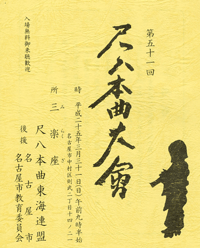 第五十一回
尺八本曲大會
時 平成二十五年三月三十一日(日)午前九時半始
所 三楽座
名古屋市中村区
尺八本曲東海連盟
後援 名古屋市
名古屋市教育委員会
入場無料御来聴歓迎